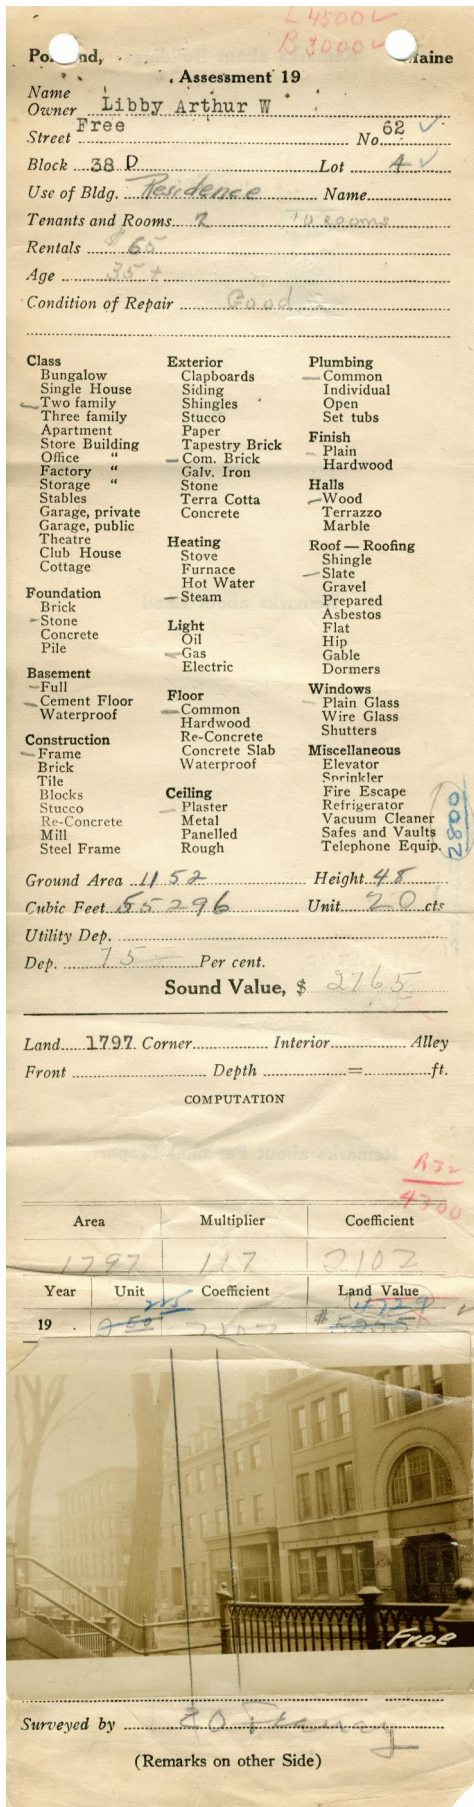 L 4500 ✓
B 3000 ✓
Portland, Maine
Assessment 19
Name
Owner Libby Arthur W
Street Free No. 62 ✓
Block 38 D Lot 4 ✓
Use of Bldg. Residence Name
Tenants and Rooms 2 10 rooms
Rentals $65
Age 35 +
Condition of Repair Good
Class
Bungalow
Single House
Two family
Three family
Apartment
Store Building
Office "
Factory "
Storage "
Stables
Garage, private
Garage, public
Theatre
Club House
Cottage
Foundation
Brick
Stone
Concrete
Pile
Basement
Full
Cement Floor
Waterproof
Construction
Frame
Brick
Tile
Blocks
Stucco
Re-Concrete
Mill
Steel Frame
Exterior
Clapboards
Siding
Shingles
Stucco
Paper
Tapestry Brick
Com. Brick
Galv. Iron
Stone
Terra Cotta
Concrete
Heating
Stove
Furnace
Hot Water
Steam
Light
Oil
Gas
Electric
Floor
Common
Hardwood
Re-Concrete
Concrete Slab
Waterproof
Ceiling
Plaster
Metal
Panelled
Rough
Plumbing
Common
Individual
Open
Set tubs
Finish
Plain
Hardwood
Halls
Wood
Terrazzo
Marble
Roof — Roofing
Shingle
Slate
Gravel
Prepared
Asbestos
Flat
Hip
Gable
Dormers
Windows
Plain Glass
Wire Glass
Shutters
Miscellaneous
Elevator
Sprinkler
Fire Escape
Refrigerator
Vacuum Cleaner
Safes and Vaults
Telephone Equip.
2800
Ground Area 1152 Height 48
Cubic Feet 55296 Unit 20 cts
Utility Dep.
Dep. 75 Per cent.
Sound Value, $ 2765
Land 1797 Corner Interior Alley
Front Depth = ft.
COMPUTATION
R32
4300
Area Multiplier Coefficient
1797 117 2102
Year Unit Coefficient Land Value
225 4729
19 250 2102 #5255
Free
Surveyed by
(Remarks on other Side)